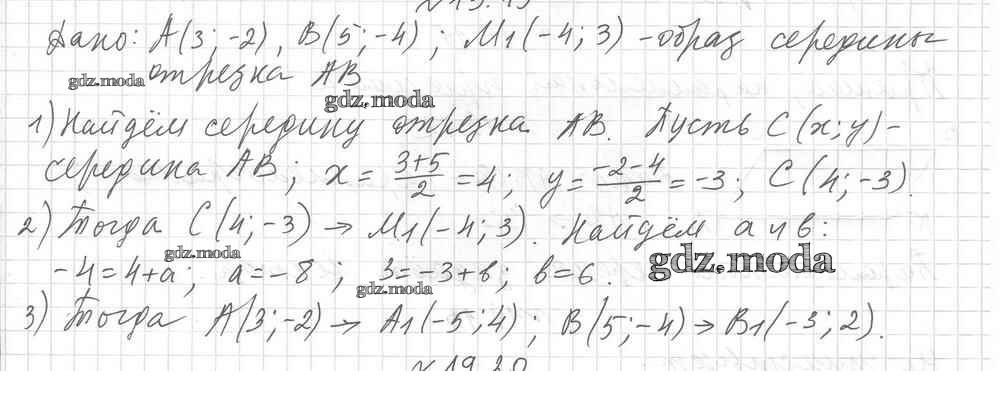 N 19.19
Дано: A(3; -2), B(5; -4); M1(-4; 3) - образ середины
gdz.moda отрезка AB
gdz.moda
1) Найдём середину отрезка AB. Пусть C(x; y) -
середина AB; x = 3+5/2 = 4; y = -2-4/2 = -3; C(4; -3).
2) Тогда C(4; -3) → M1(-4; 3). Найдём a и b:
gdz.moda
gdz.moda
-4 = 4+a; a = -8; 3 = -3+b; b = 6.
gdz.moda
3) Тогда A(3; -2) → A1(-5; 4); B(5; -4) → B1(-3; 2).
N 19.20